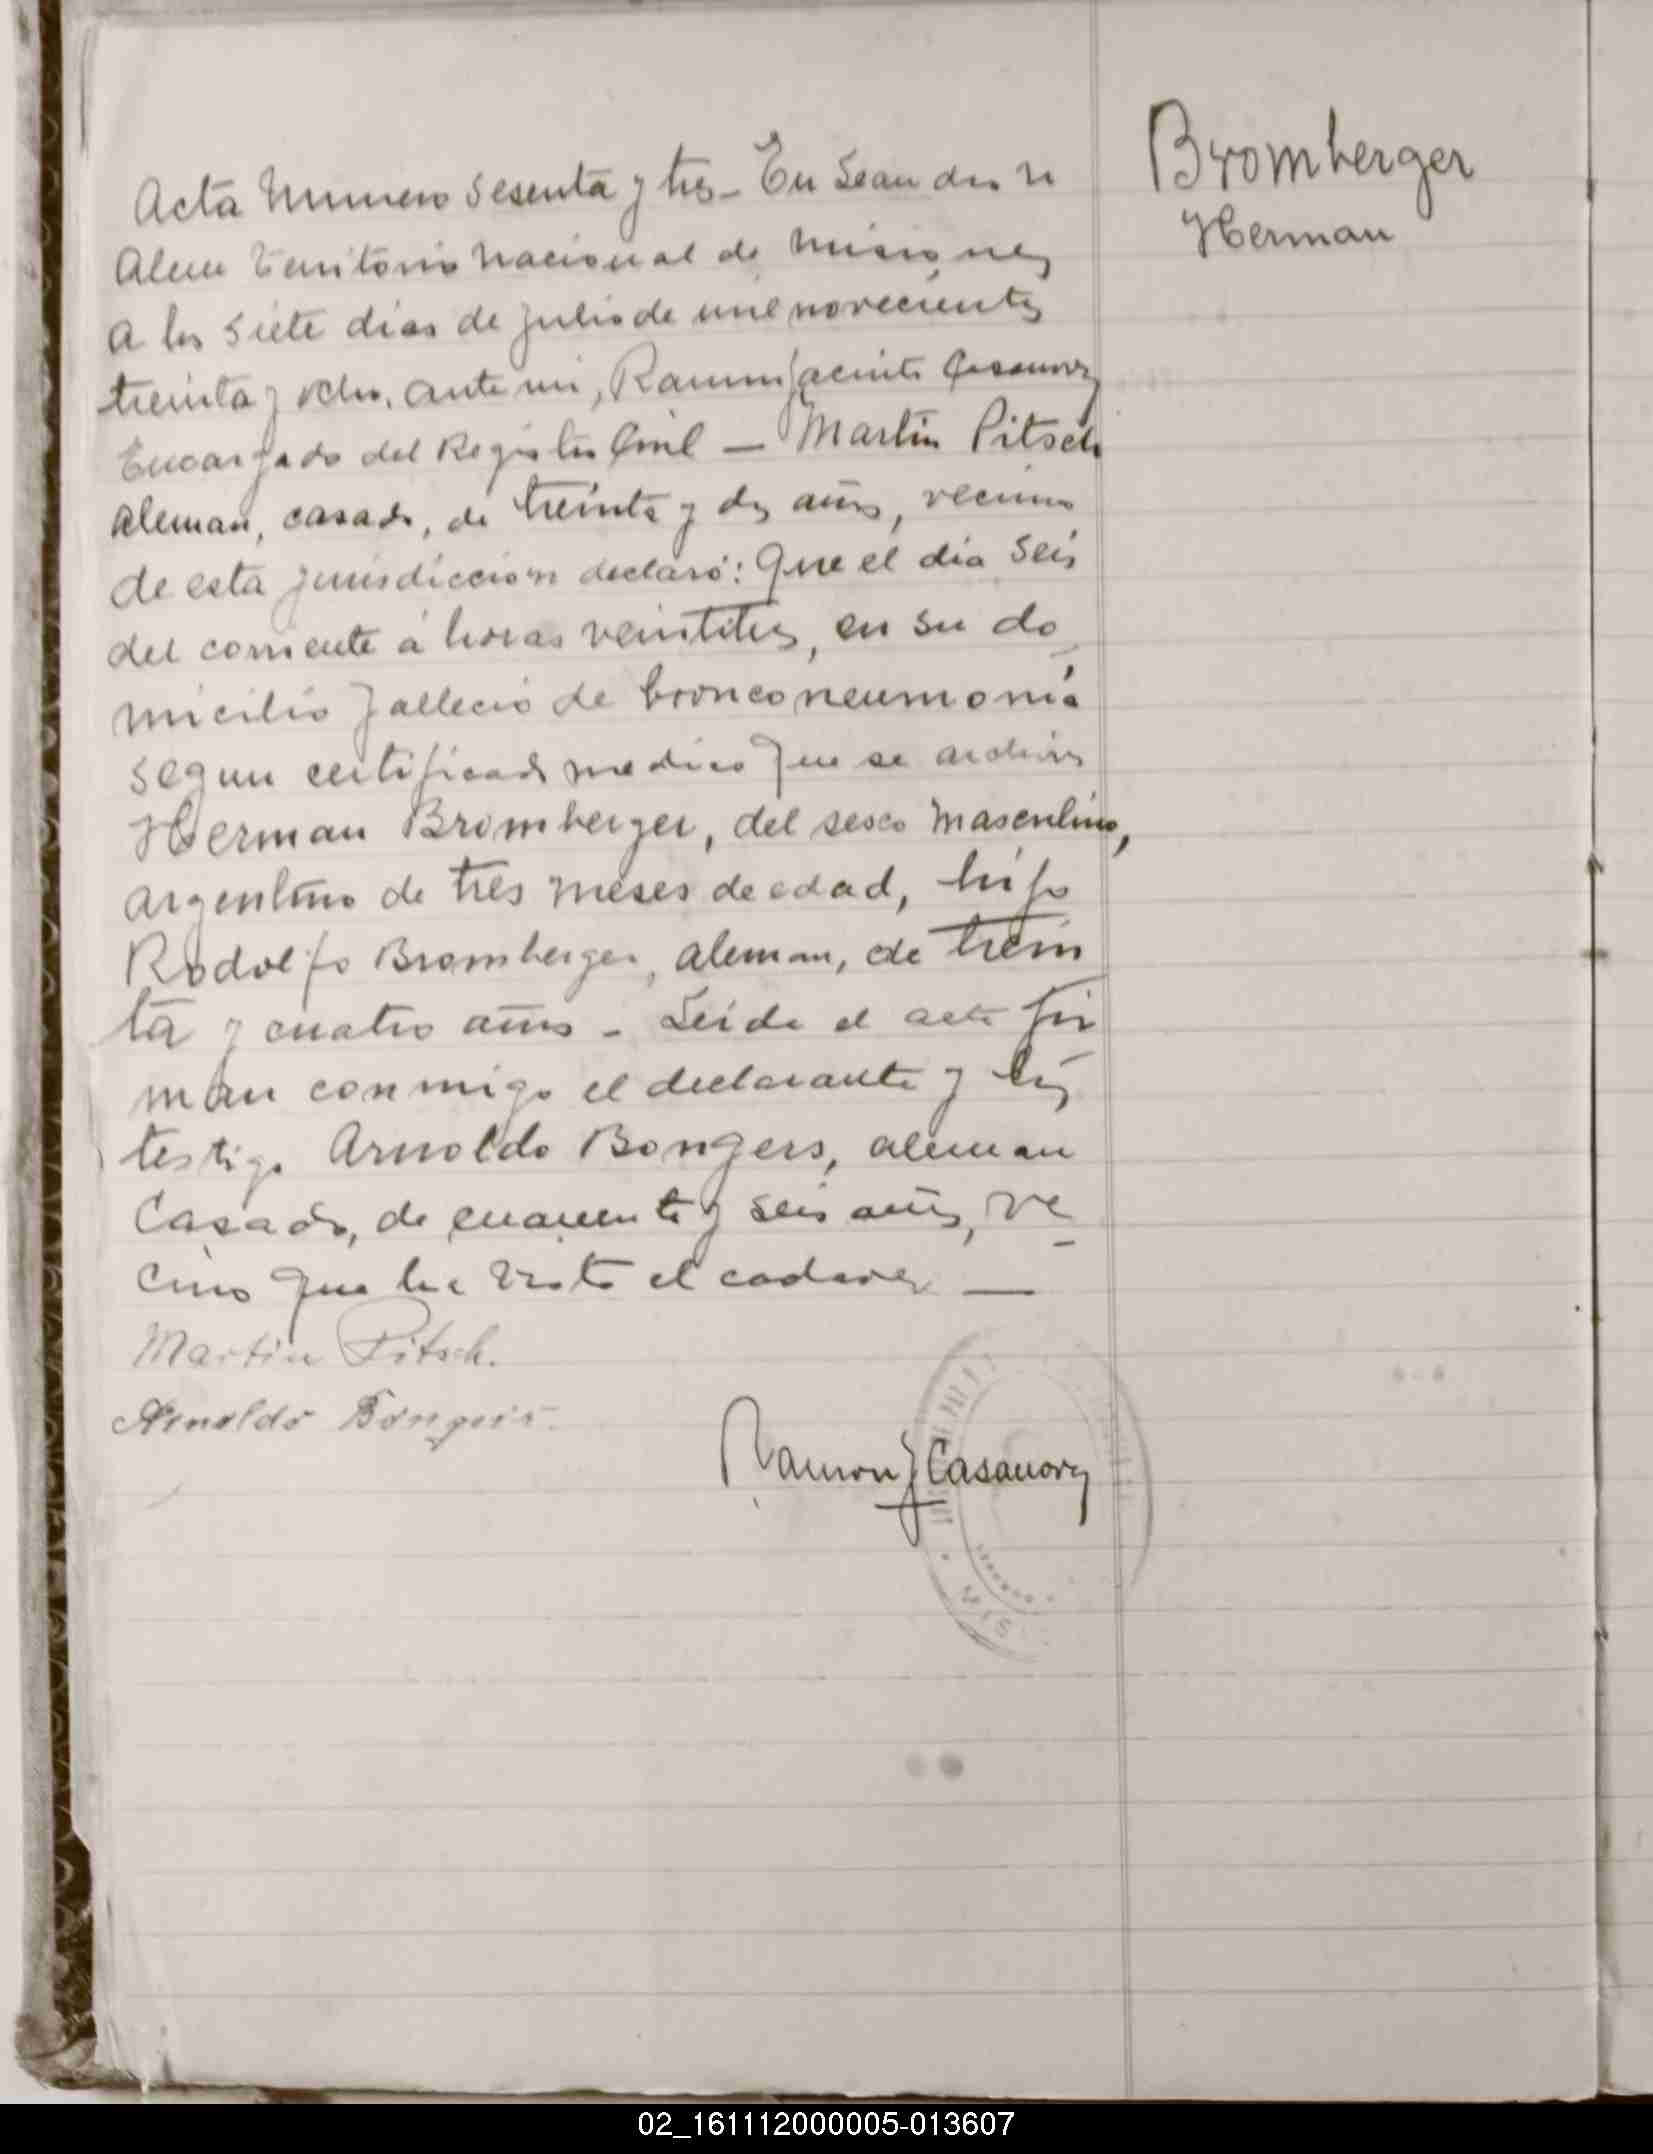 Acta Numero Sesenta y tres - En Leandro N
Alem Territorio Nacional de Misiones
a los siete dias de Julio de mil novecientos
treinta y ocho, ante mi, Ramon Jacinto Casanova
Encargado del Registro Civil — Martin Pitsch
aleman, casado, de treinta y dos años, vecino
de esta jurisdiccion declaró: Que el dia seis
del corriente á horas veintitres, en su do
micilio fallecio de bronconeumonía
segun certificado medico que se archiva
Herman Bromberger, del sexo masculino,
argentino de tres meses de edad, hijo
Rodolfo Bromberger, aleman, de trein
ta y cuatro años - Leida el acta fir
man conmigo el declarante y
testigo Arnoldo Bongers, aleman
casado, de cuarenta y seis años, ve
cino que ha visto el cadaver —
Martin Pitsch.
Arnoldo Bongers.
Ramon J Casanova
Bromberger
Herman
02_161112000005-013607